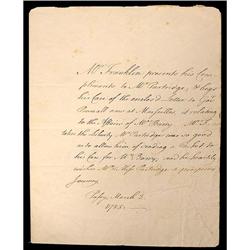 Mr Franklin presents his Com-
pliments to Mr Partridge, & begs
his Care of the enclos'd Letter to
now at Marseilles, it relating
to the Affairs of Mr Barry. Mr F.
takes the Liberty Mr Partridge was so good
as to allow him of sending a
to his Care for Mr Barry, and he heartily
wishes Mr & Miss Partridge a prosperous
Journey.
Passy, March 3.
1785.